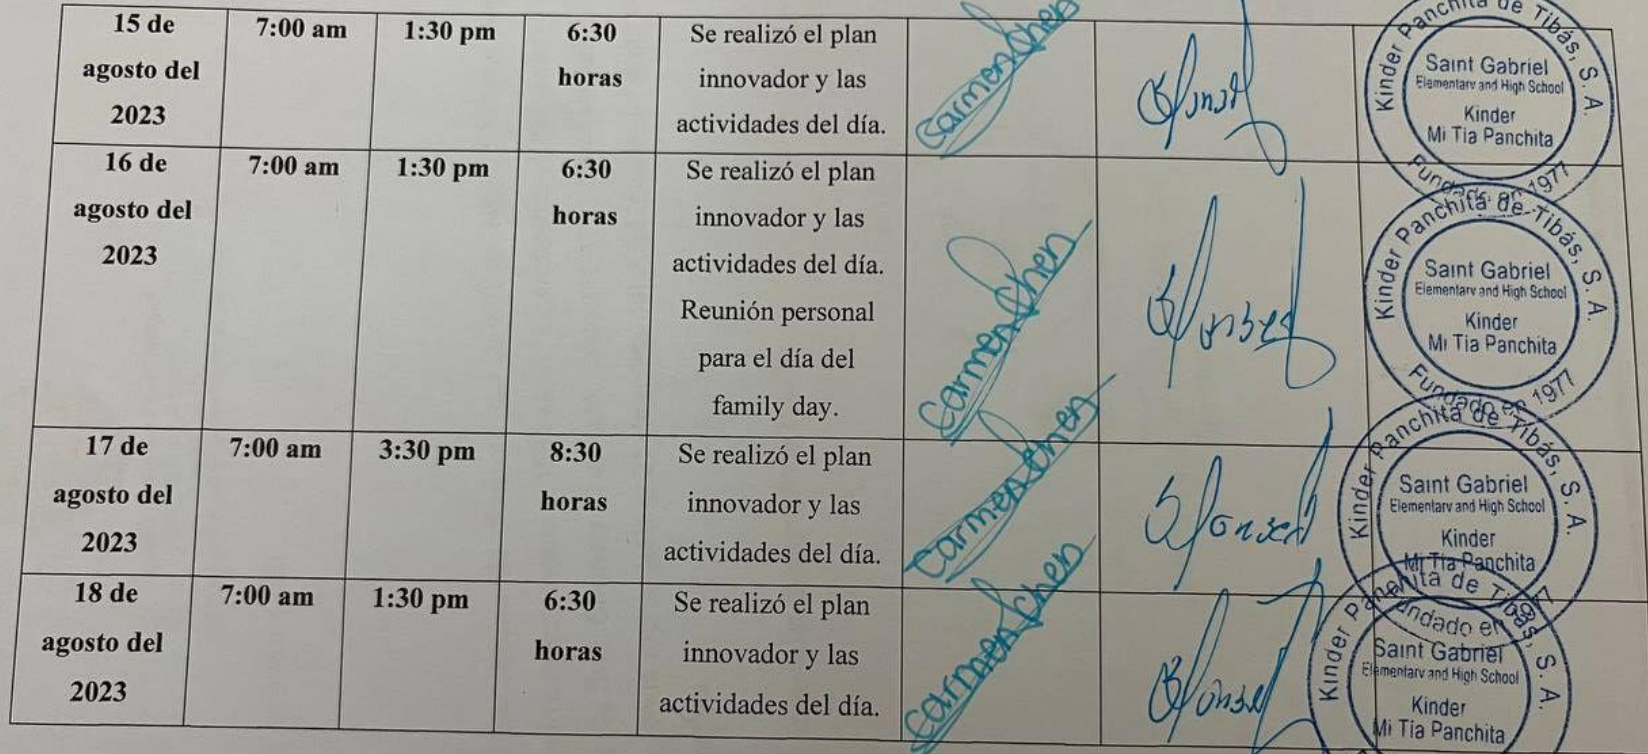 15 de
agosto del
2023
7:00 am
1:30 pm
6:30
horas
Se realizó el plan
innovador y las
actividades del día.
Carmen Chen
Kinder Panchita de Tibás, S. A.
Saint Gabriel
Elementary and High School
Kinder
Mi Tía Panchita
Fundado en 1977
16 de
agosto del
2023
7:00 am
1:30 pm
6:30
horas
Se realizó el plan
innovador y las
actividades del día.
Reunión personal
para el día del
family day.
Carmen Chen
Kinder Panchita de Tibás, S. A.
Saint Gabriel
Elementary and High School
Kinder
Mi Tía Panchita
Fundado en 1977
17 de
agosto del
2023
7:00 am
3:30 pm
8:30
horas
Se realizó el plan
innovador y las
actividades del día.
Carmen Chen
Kinder Panchita de Tibás, S. A.
Saint Gabriel
Elementary and High School
Kinder
Mi Tía Panchita
Fundado en 1977
18 de
agosto del
2023
7:00 am
1:30 pm
6:30
horas
Se realizó el plan
innovador y las
actividades del día.
Carmen Chen
Kinder Panchita de Tibás, S. A.
Saint Gabriel
Elementary and High School
Kinder
Mi Tía Panchita